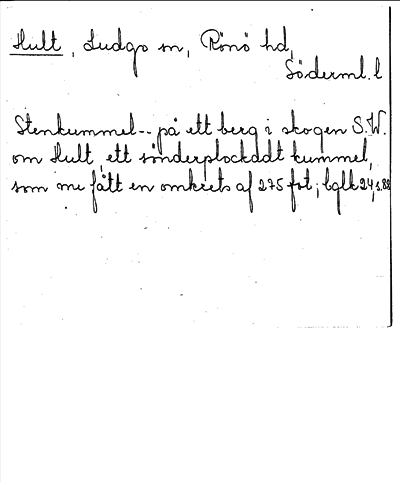 Hult, Ludgo sn, Rönö hd,
Söderml. l
Stenkummel -- på ett berg i skogen S.W.
om Hult, ett sönderplockadt kummel,
som nu fått en omkrets af 275 fot; bglk 24, s. 88